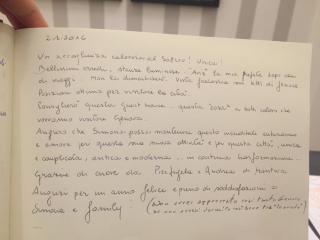 2.1.2016
Un accoglienza calorosa al Salvo! Unica!
Bellissimi arredi, stanza luminosa "Aria" la mia preferita dopo anni
di viaggi. Non la dimenticherò. Vista fantastica sui tetti di
Posizione ottima per visitare la città.
Consiglierò questa guest house questa "casa" a tutti coloro che
vorranno visitare Genova.
Auguro che Simona possa mantenere questo entusiasmo
e amore per questa sua nuova attività e per questa città, unica
e complicata, antica e moderna... in continua trasformazione...
Grazie di cuore da Pierfrancesca e Andrea di Mantova
Auguri per un anno felice e pieno di soddisfazioni a
Simona e family. (Non avrei apprezzato così tanto Genova
se non avessi dormito nel tuo B&B